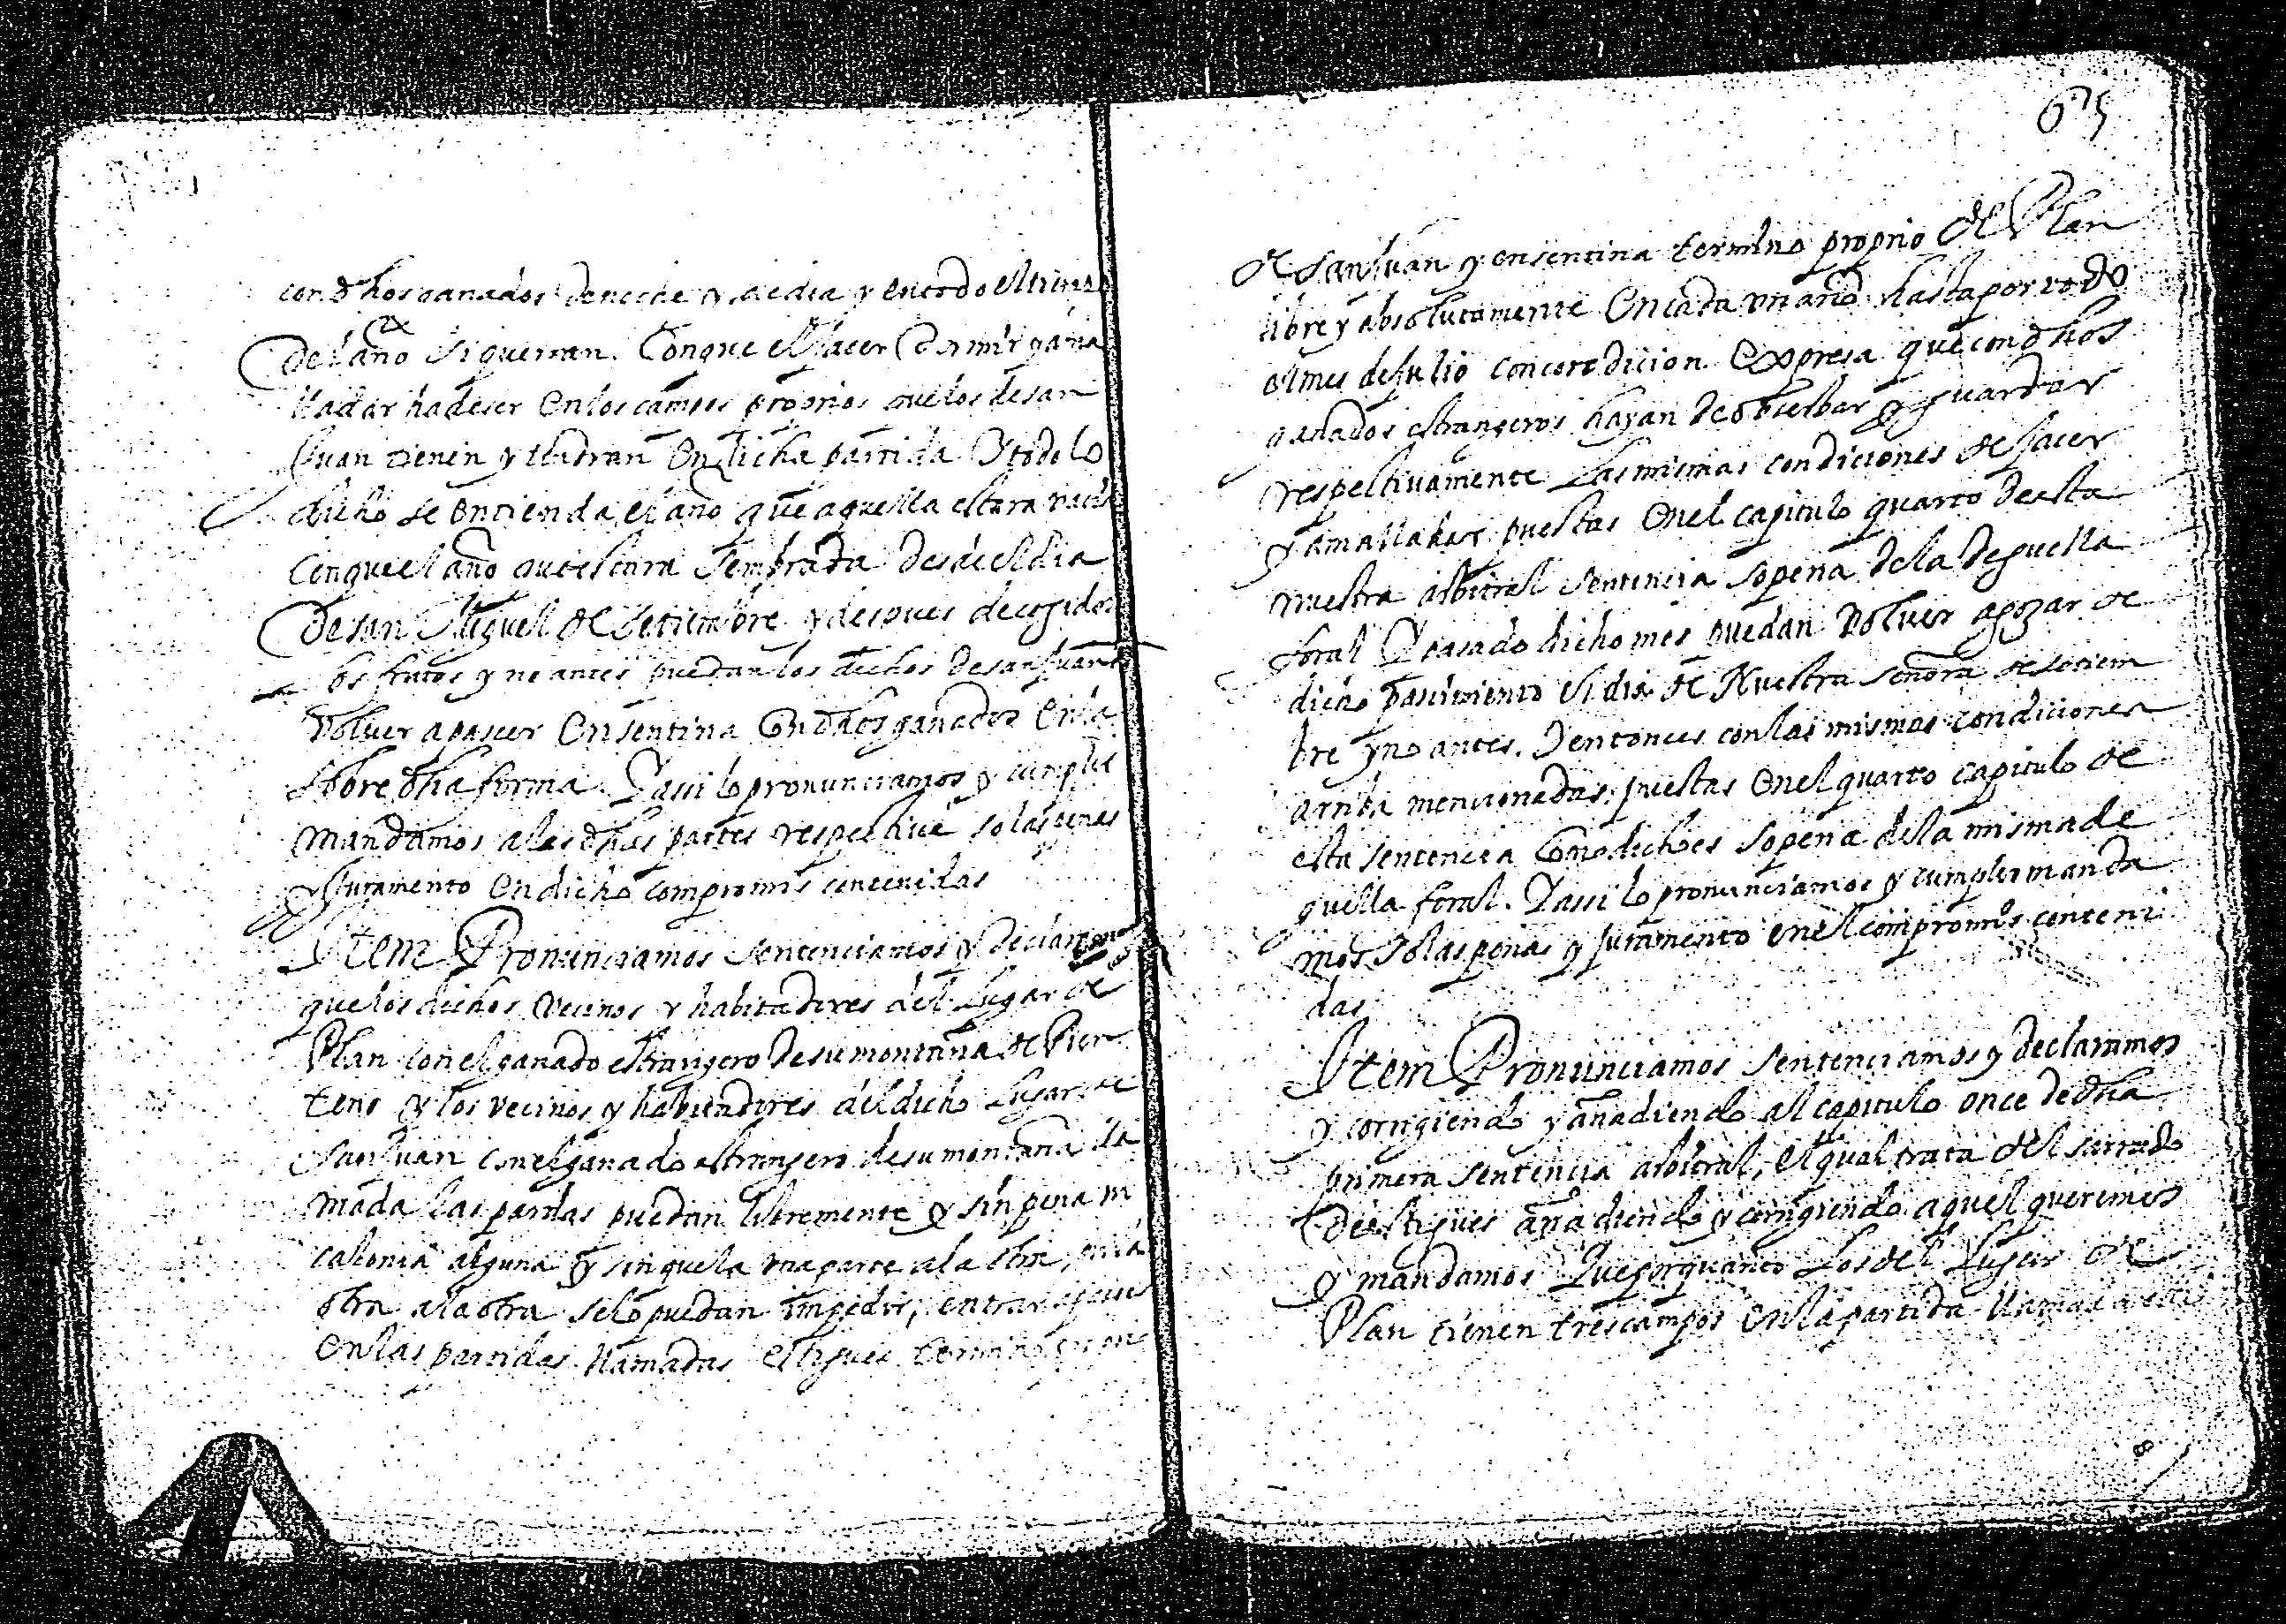 con dhos ganados de noche y de dia y en todo el tiempo
del año si querran. Con que el Jacer Dormir y ama
lladar ha de ser en los campos proprios que los de san
Juan tienen y tendran en dicha partida Y todo lo
dicho se entienda el año que aquella estara
con que el año que estara sembrada desde el dia
De san Miguel de Setiembre y despues de cogidos
los frutos y no antes puedan los dichos de san Juan
volver a pascer en sentina con dhos ganados en la
sobre dha forma. Y assi lo pronunciamos y cumplir
mandamos a las dhas partes respective so las penas
y Juramento en dicho compromis contenidas
Item Pronunciamos sentenciamos y declaramos
que los dichos vecinos y habitadores del Lugar de
Plan con el ganado estrangero de su montaña de
y los vecinos y habitadores del dicho Lugar de
san Juan con el ganado estrangero de su montaña lla
mada las puedan libremente y sin pena ni
calonia alguna y sin que la una parte a la otra, ni la
otra a la otra selo puedan impedir, entrar
en las partidas llamadas
675
de san Juan y en sentina termino proprio de Plan
libre y absolutamente en cada un año hasta por todo
el mes de Julio con condicion expresa que con dhos
ganados estrangeros hayan de obserbar y guardar
respectivamente Las mismas condiciones de Jacer
y amalladar puestas en el capitulo quarto de esta
nuestra arbitral sentencia so pena de la deguella
foral Y pasado dicho mes puedan volver a gozar de
dicho pascimiento el dia de Nuestra Señora de setiem
bre y no antes. Y entonces con las mismas condiciones
arriba mencionadas, puestas en el quarto capitulo de
esta sentencia Como dicho es so pena de la misma de
guella foral. Y assi lo pronunciamos y cumplir manda
mos so las penas y juramento en el compromis conteni
das
Item Pronunciamos sentenciamos y declaramos
y corrigiendo y añadiendo al capitulo once de dha
primera sentencia arbitral, el qual trata del
de añadiendo y corrigiendo aquel queremos
y mandamos Que por quanto Los del Lugar de
Plan tienen tres campos en la partida llamada
8